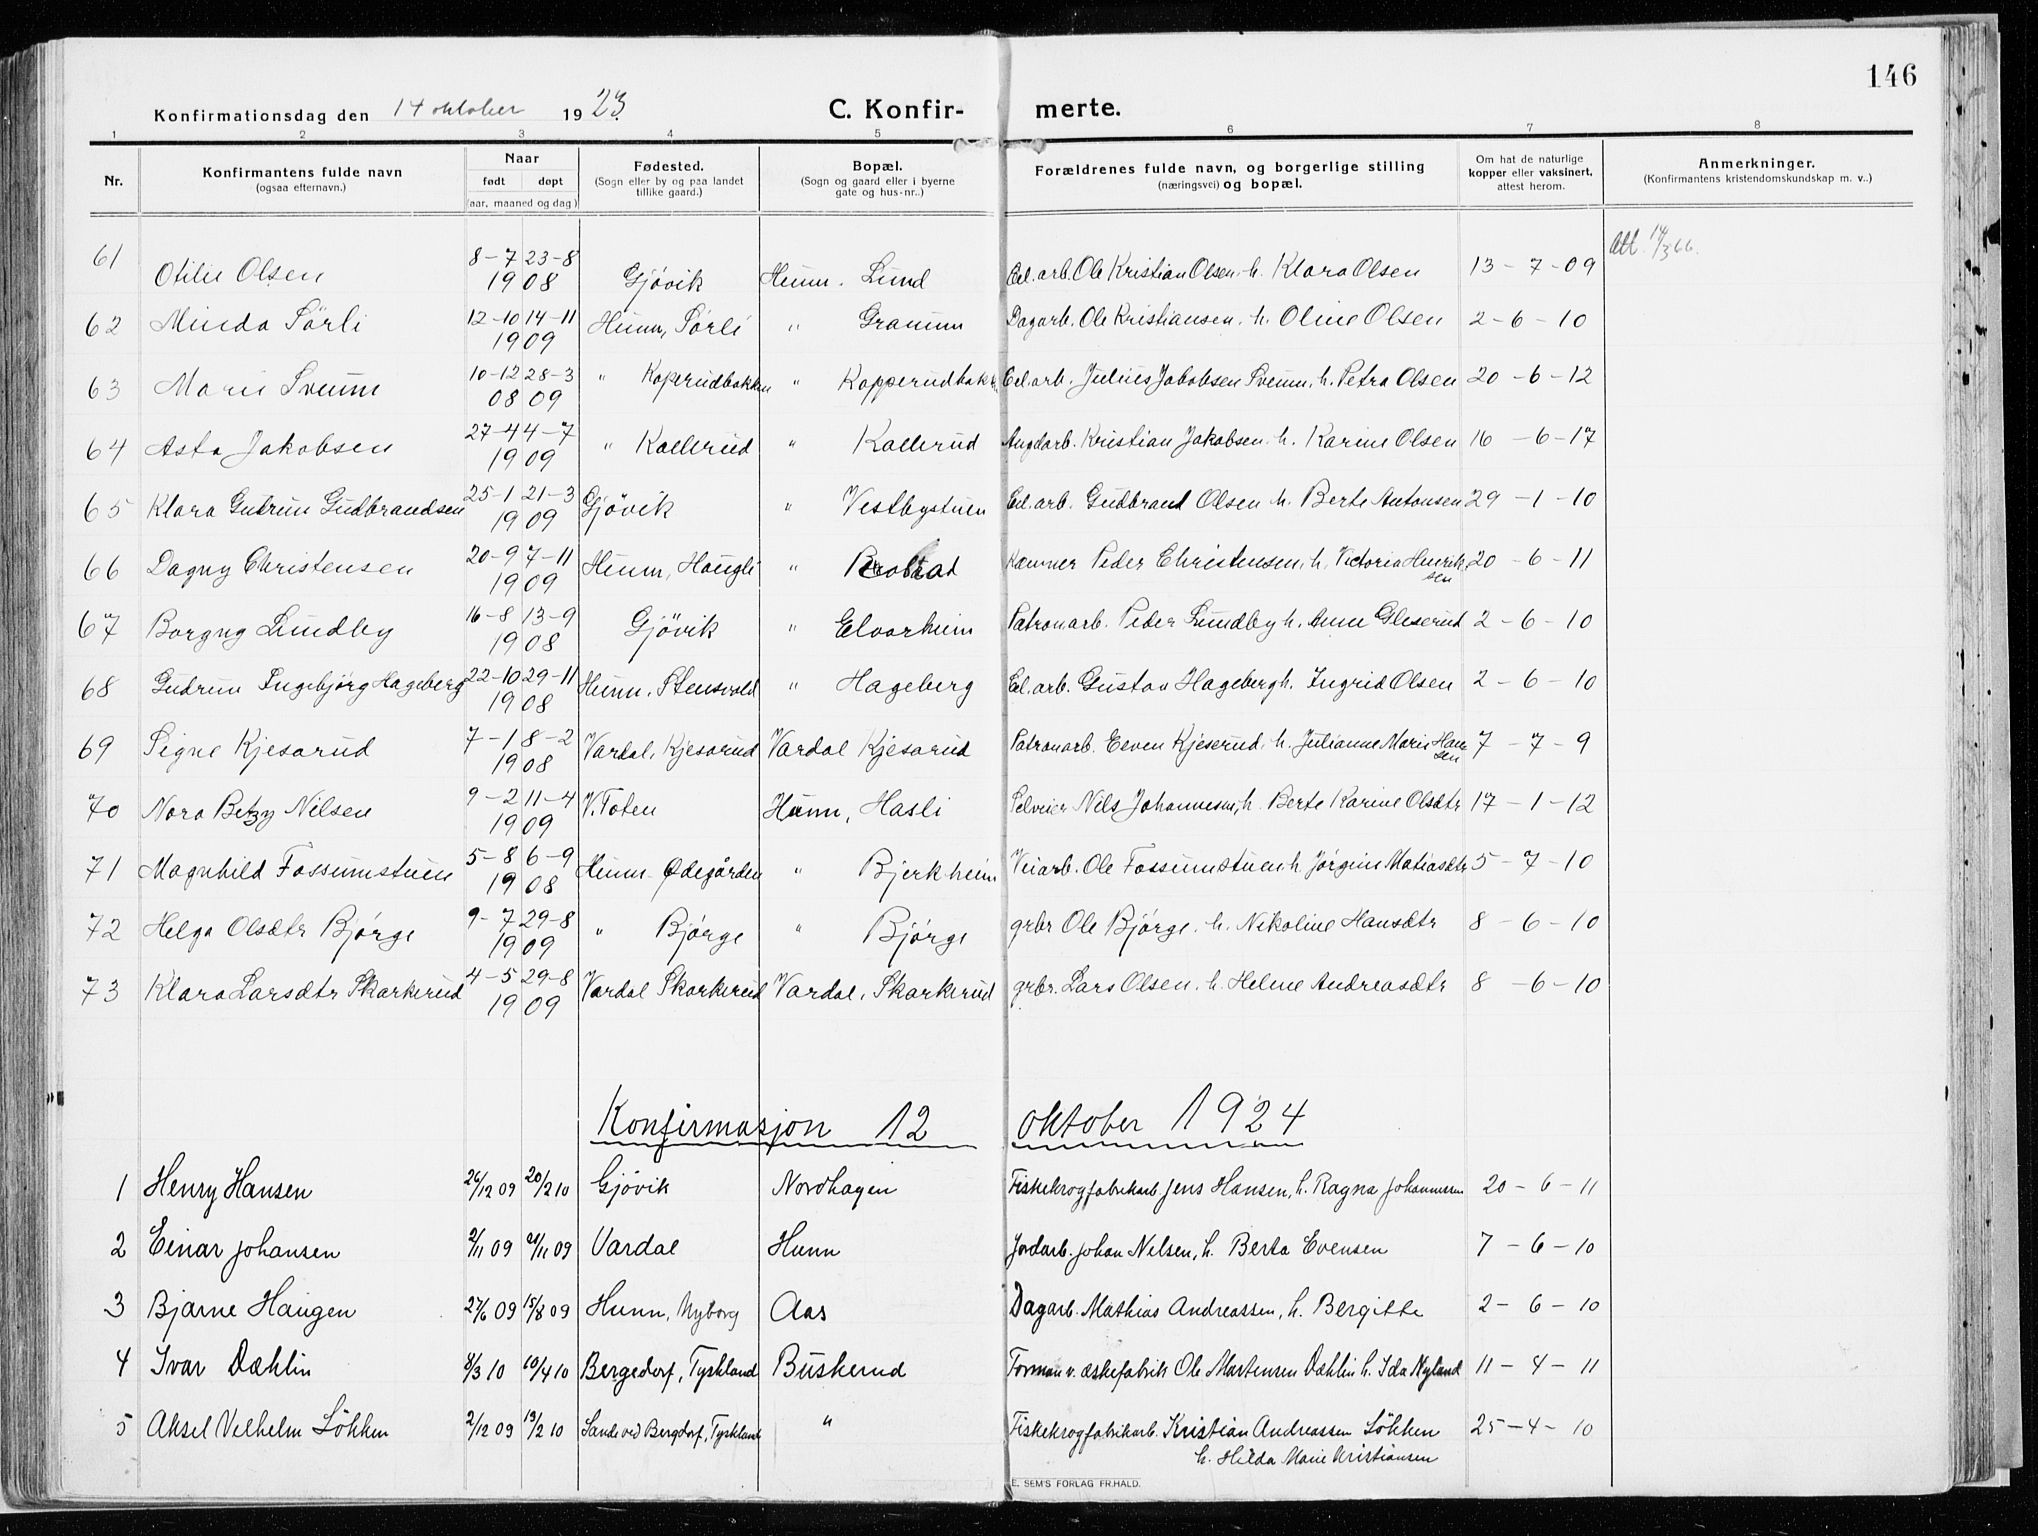 146
Konfirmationsdag den 14 oktober 1923. C. Konfir- merte.
1 2 3 4 5 6 7 8
Nr. Konfirmantens fulde navn (ogsaa efternavn.) Naar født døpt (aar, maaned og dag) Fødested. (Sogn eller by og paa landet tillike gaard.) Bopæl. (Sogn og gaard eller i byerne gate og hus-nr..) Forældrenes fulde navn, og borgerlige stilling (næringsvei) og bopæl. Om hat de naturlige kopper eller vaksinert, attest herom. Anmerkninger. (Konfirmantens kristendomskundskap m. v..)
61 Otilie Olsen 8-7 1908 23-8 Gjövik Hunn. Lund Eil.arb. Ole Kristian Olsen. h. Klara Olsen 13-7-09 Att. 14/3 66.
62 Minda Sörli 12-10 14-11 1909 Hunn, Sörli " Granum Dagarb. Ole Kristiansen. h. Oline Olsen 2-6-10
63 Marie Sveum 10-12 08 28-3 09 " Koperudbakken " Kopperudbakken Eil.arb. Julius Jakobsen Sveum, h. Petra Olsen 20-6-12
64 Asta Jakobsen 27-4 4-7 1909 " Kallerud " Kallerud Kristian Jakobsen. h. Karine Olsen 16-6-17
65 Klara Gudrun Gudbrandsen 25-1 21-3 1909 Gjövik " Vestbystuen Eil.arb. Gudbrand Olsen h. Berte Antonsen 29-1-10
66 Dagny Christensen 20-9 7-11 1909 Hunn, Haugli " Brobtad Peder Christensen, h. Victoria Henriksen 20-6-11
67 Borgny Lundby 16-8 13-9 1908 Gjövik " Elvarheim Patronarb. Peder Lundby h. Anne Gleserud 2-6-10
68 Gudrun Ingebjörg Hageberg 22-10 29-11 1908 Hunn, Stensvold " Hageberg Eil.arb. Gustav Hageberg h. Ingrid Olsen 2-6-10
69 Signe Kjesarud 7-1 8-2 1908 Vardal, Kjesarud Vardal Kjesarud Patronarb. Even Kjeserud, h. Julianne Marie Hansen 7-7-9
70 Nora Betzy Nilsen 9-2 11-4 1909 V. Toten Hunn, Hasli Selveier Nils Johannesen, h. Berte Karine Olsdtr 17-1-12
71 Magnhild Fossumstuen 5-8 6-9 1908 Hunn Ødegården " Bjerkheim Veiarb. Ole Fossumstuen h. Jörgine Matiasdtr 5-7-10
72 Helga Olsdtr Bjørge 9-7 29-8 1909 " Bjørge " Bjørge grbr Ole Bjørge. h. Nikoline Hansdtr 8-6-10
73 Klara Larsdtr Skarkerud 4-5 29-8 1909 Vardal Skarkerud Vardal, Skarkerud grbr. Lars Olsen. h. Helene Andreasdtr 8-6-10
Konfirmasjon 12 oktober 1924
1 Henry Hansen 26/12 09 20/2 10 Gjövik Nordhagen Fiskekrogfabrikarb. Jens Hansen, h. Ragna Johannessen 20-6-11
2 Einar Johansen 2/11 09 /11 09 Vardal Hunn Jordarb. Johan Nilsen, h. Berta Evensen 7-6-10
3 Bjarne Haugen 27/6 09 15/8 09 Hunn, Nyborg Aas Dagarb. Mathias Andreassen, h. Bergitte 2-6-10
4 Ivar Dæhlin 8/3 10 10/4 10 Bergedorf, Tyskland Buskerud Forman v. æskefabrik Ole Martensen Dæhlin h. Ida Nyland 11-4-11
5 Aksel Vilhelm Lökken 2/12 09 13/2 10 Sande ved Bergdorf, Tyskland " Fiskekrogfabrikarb. Kristian Andreassen Lökken
h. Hilda Marie Kristiansen 25-4-10
E. SEM'S FORLAG FR.HALD.